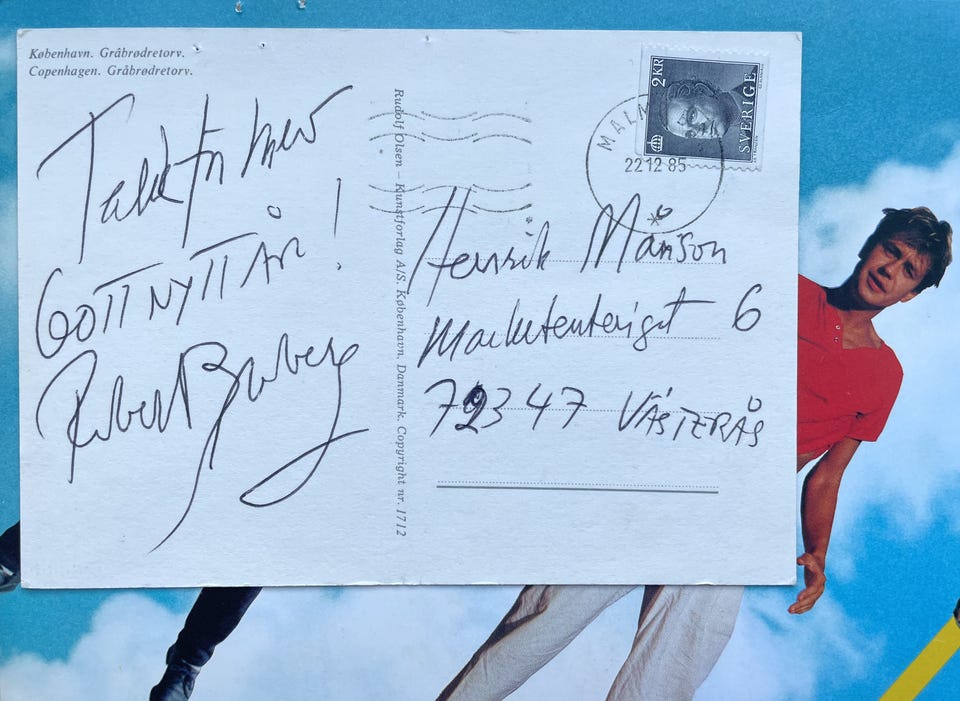 København. Gråbrødretorv.
Copenhagen. Gråbrødretorv.
Tack för brev
GOTT NYTT ÅR!
Robert Broberg
Rudolf Olsen – Kunstforlag A/S. København. Danmark. Copyright nr. 1712
2 KR
SVERIGE
MALM
22 12 85
Henrik Månson
Marketenterigat 6
723 47 VÄSTERÅS